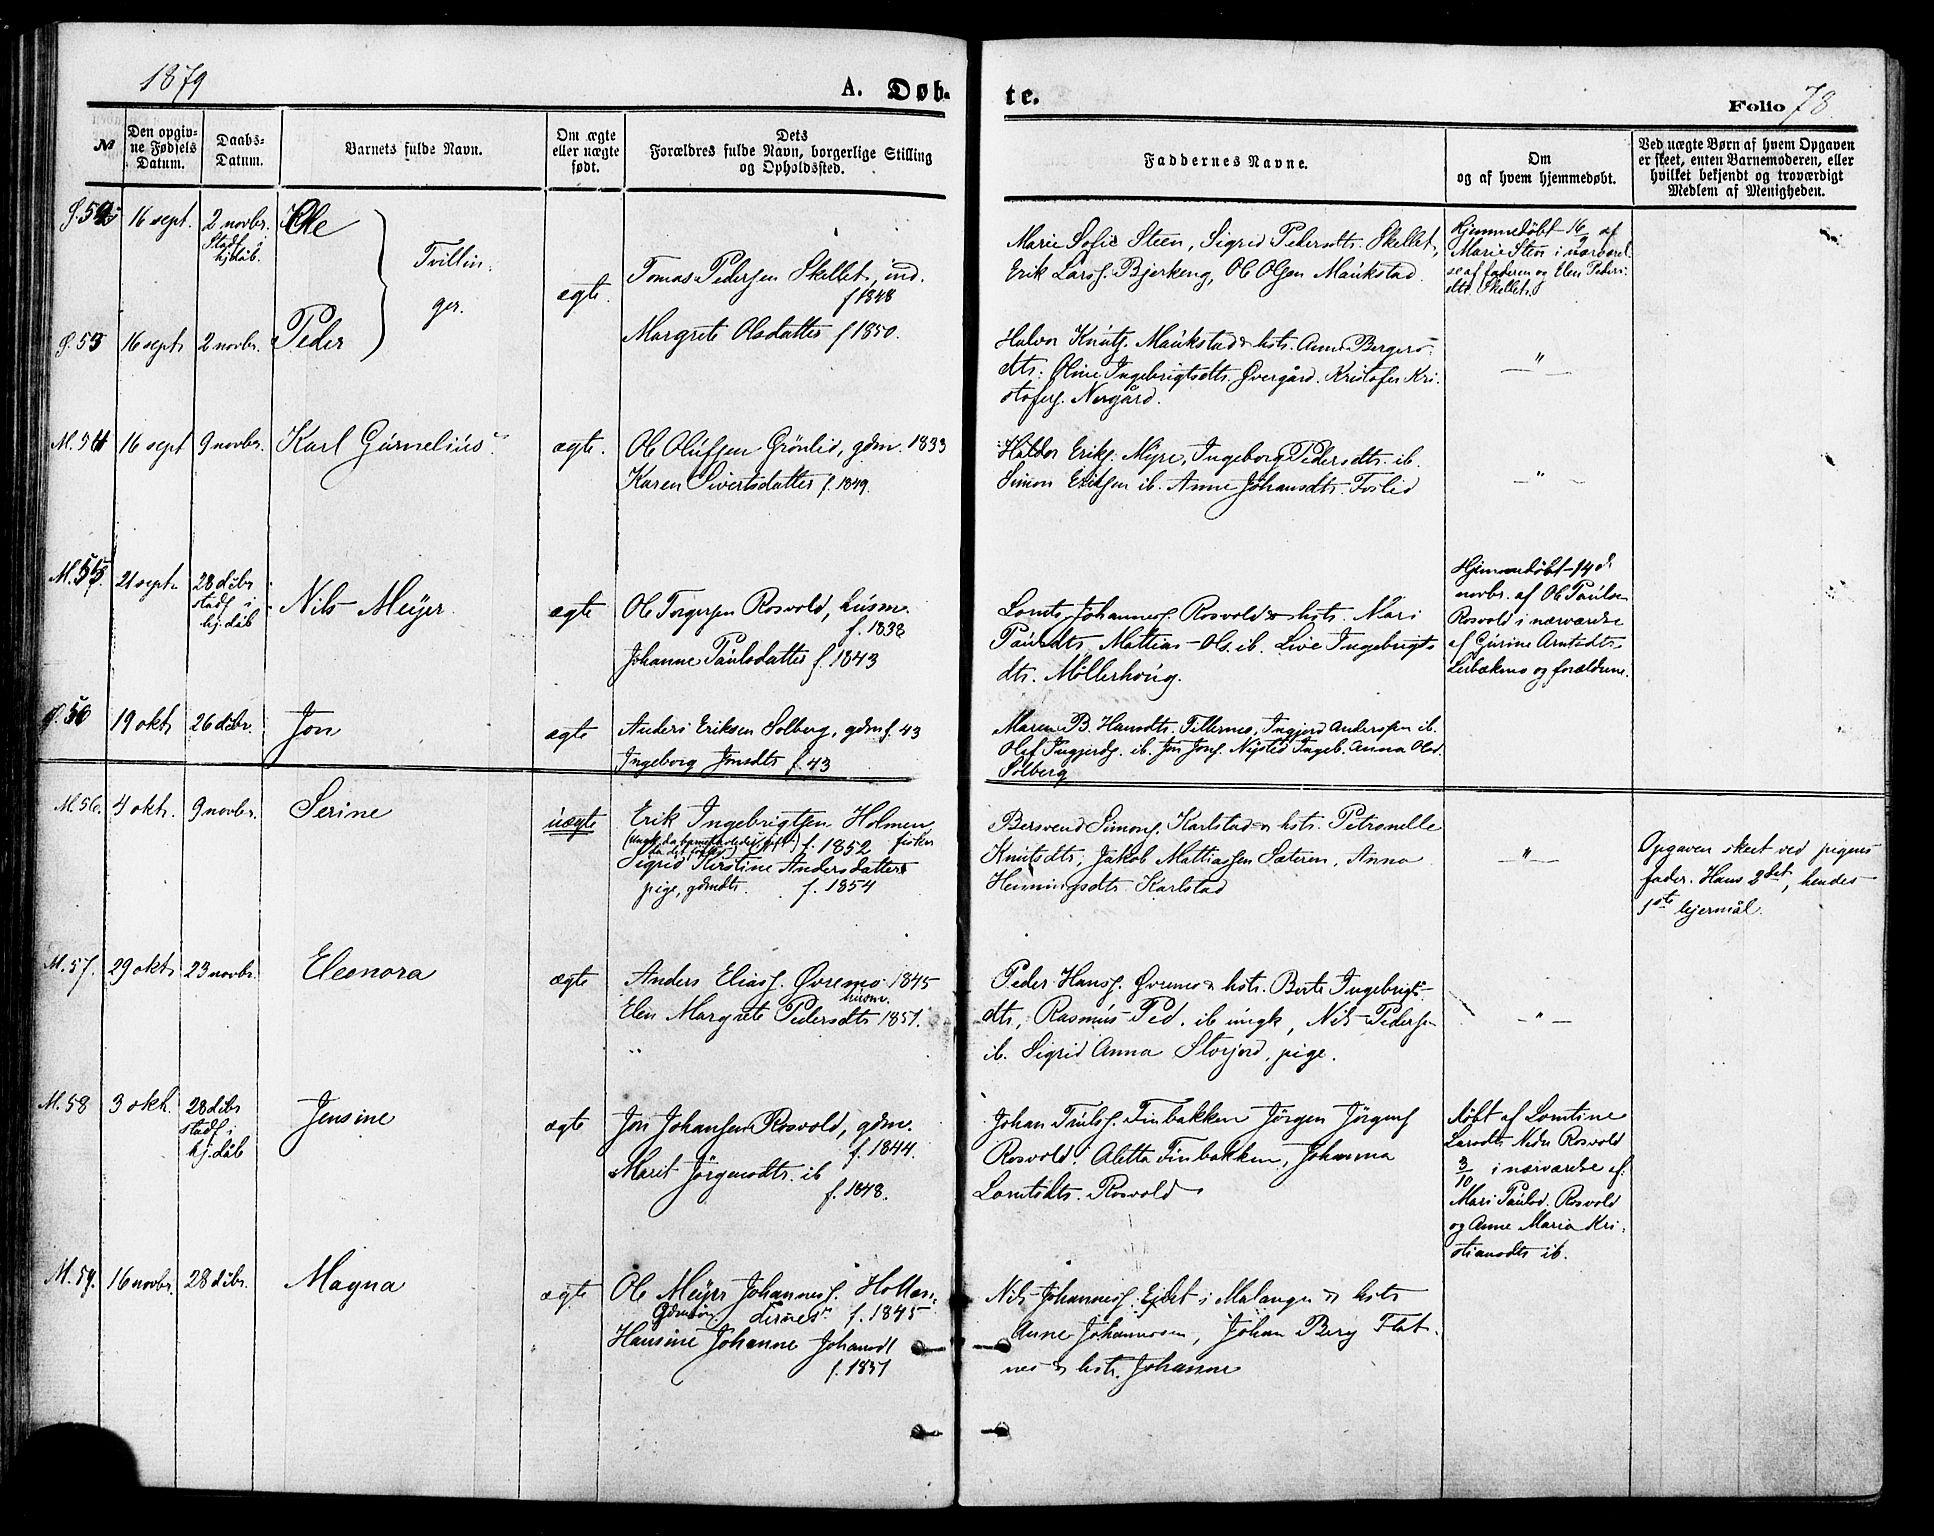 1879
A. Døb-
te.
Folio 78.
№
Den opgiv-
ne Fødsels
Datum.
Daabs-
Datum.
Barnets fulde Navn.
Om ægte
eller uægte
født.
Dets
Forældres fulde Navn, borgerlige Stilling
og Opholdssted.
Faddernes Navne.
Om
og af hvem hjemmedøbt.
Ved uægte Børn af hvem Opgaven
er skeet, enten Barnemoderen, eller
hvilket bekjendt og troværdigt
Medlem af Menigheden.
16 sept.
2 novbr.
Stadf i
hjdåb.
Ole
Tvillin-
ger.
ægte.
Tomas Pedersen Skellet, ind.
f 1848
Margrete Olsdatter f 1850.
Marie Sofie Steen, Sigrid Pedersdtr. Skellet,
Erik Larss. Bjerkeng, Ol Olsen Maukstad.
Hjemmedøbt 16/9 af
Marie Steen i nærværel-
se af faderen og Elen Peders-
dtr Skellet.
16 sept
2 novbr.
Peder
Halvor Knuts. Maukstad & hstr. Anne Bergers-
dtr. Oline Ingebrigtsdtr. Øvergård. Kristofer Kri-
stofers. Nergård.
"
M. 54
16 sept
9 novbr.
Karl Gurnelius
ægte.
Ol Olufsen Grönlid, gdm. 1833
Karen Sivertsdatter f. 1849.
Haldor Eriks. Myre, Ingeborg Pedersdtr. ib.
Simon Eriksen ib. Anne Johansdtr. Foslid
"
M. 55.
21 sept.
28 dcbr
stadf i
hj. dåb
Nils Meyer
ægte
Ole Torgersen Rosvold, husm.
f. 1838
Johanne Paulsdatter f 1843
Lornts Johanness. Rosvold & hstr. Mari
Paulsdtr, Mattias Ols. ib. Live Ingebrigts
dtr. Møllerhoug.
Hjemmedøbt 14de
novbr. af Ol Paulsen
Rosvold i nærværelse
af Gurine Arntsdtr
og forældrene.
19 okt
26 dcbr.
Jon
ægte
Anders Eriksen Solberg, gdm f. 43
Ingeborg Jonsdtr f. 43
Maren B. Hansdtr. Tillernes, Ingjerd Anderssen ib.
Olef Ingjerds. ib. Jon Jons. Nysted Ingeb. Anna Olsd.
Solberg
M. 56.
4 okt.
9 novbr.
Serine
uægte
Erik Ingebrigtsen Holmen
f. 1852
fisker
Sigrid Kirstine Andersdatter
pige, gdmdtr. f. 1854
Bersvend Simons. Karlstad & hstr. Petronelle
Knutsdtr, Jakob Mattiassen Sæteren, Anna
Henningsdtr. Karlstad
"
Opgaven skeet ved pigens
fader. Hans 2det, hendes
1ste lejermål.
M. 57.
29 okt
23 novbr.
Eleonora
ægte
Anders Eliass. Øvremo 1845
husm.
Elen Margrete Pedersdtr 1851.
Peder Hanss. Øvremo & hstr. Berte Ingebrigts-
dtr, Rasmus Ped. ib ungk, Nils Pedersen
ib. Sigrid Anna Storjord, pige.
"
M. 58
3 okt.
28 dcbr
stadf i
hj. dåb
Jensine
ægte
Jon Johansen Rosvold, gdm.
f. 1844.
Marit Jörgensdtr. ib
f. 1848.
Johan Truls. Finbakken Jörgen Jörgens
Rosvold. Aletta Finbakken, Johanna
Lorntsdtr. Rosvold
døbt af Lorntine
Larsdtr Nedr Rosvold
3/10 i nærværelse af
Mari Paulsd. Rosvold
og Anne Maria Kri-
stiansdtr ib.
M. 59.
16 novbr.
28 dcbr.
Magna
ægte
Ol Meyer Johanness. Hollen-
dernes f. 1845
Hansine Johanne Johansdt
f. 1857
Nils Johanness. Ejdet i Malangen & hstr
Anne Johannesen, Johan Berg Flat-
nes & hstr. Johanne